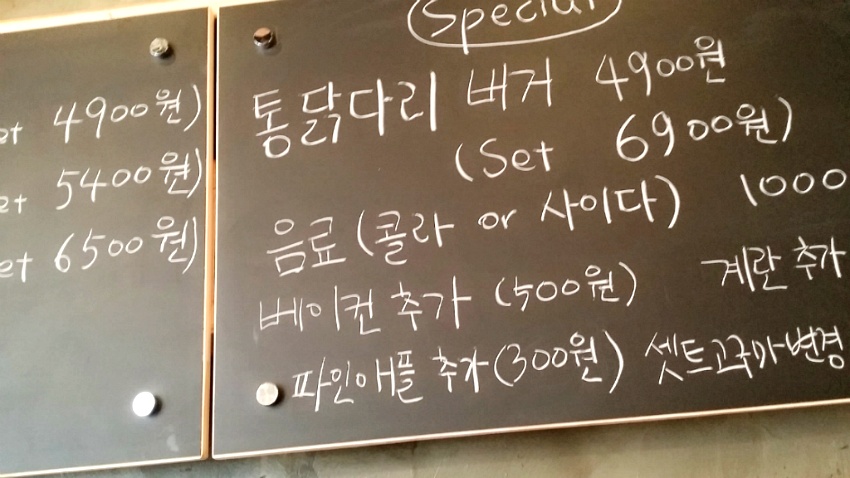 et 4900원)
et 5400원)
et 6500원)
Special
통닭다리 버거 4900원
(Set 6900원)
음료 (콜라 or 사이다) 1000
베이컨 추가 (500원) 계란 추가
파인애플 추가 (300원) 셋트고구마변경